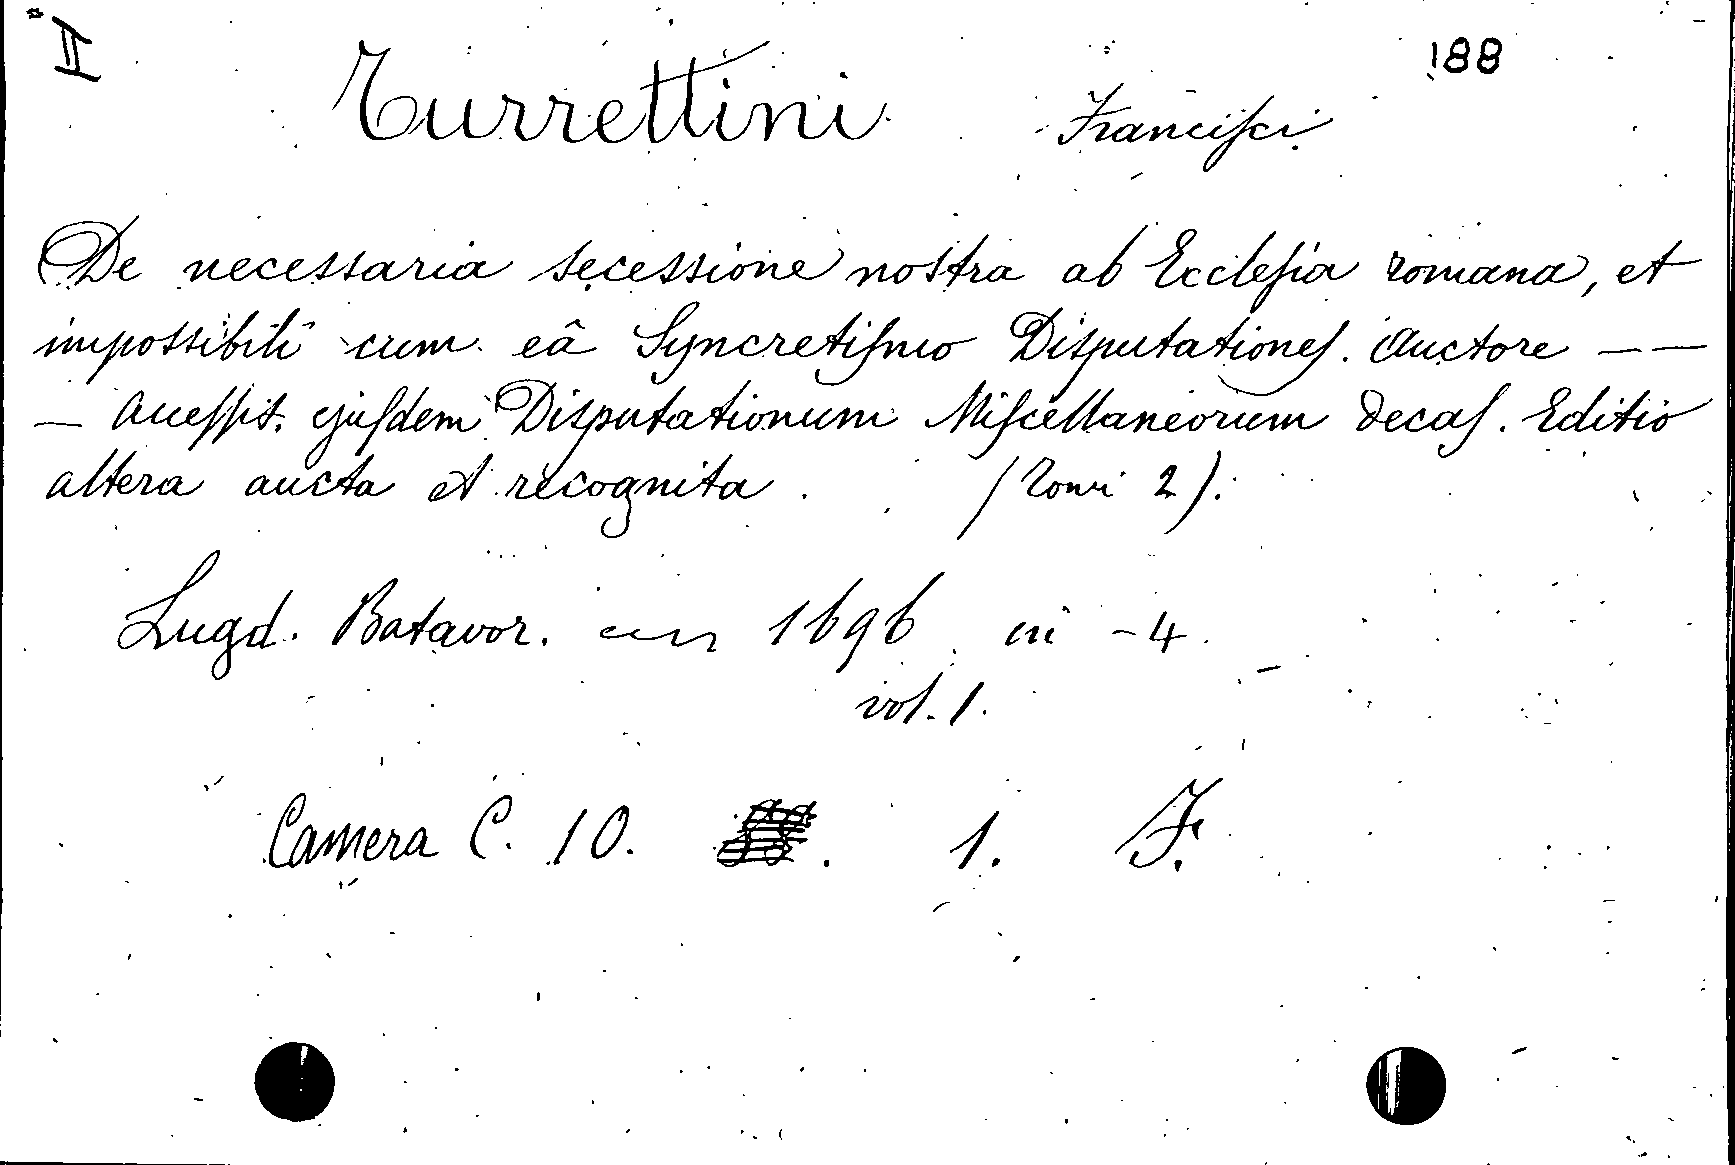 II
188
Turrettini Francisci
De necessaria secessione nostra ab Ecclesia romana, et
impossibili cum eâ Syncretismo Disputationes. Auctore — —
— Accessit. ejusdem Disputationum Miscellaneorum decas. Editio
altera aucta et recognita. (Tomi 2).
Lugd. Batavor. 1696 in -4.
vol. 1.
Camera C. 10. 1. F.